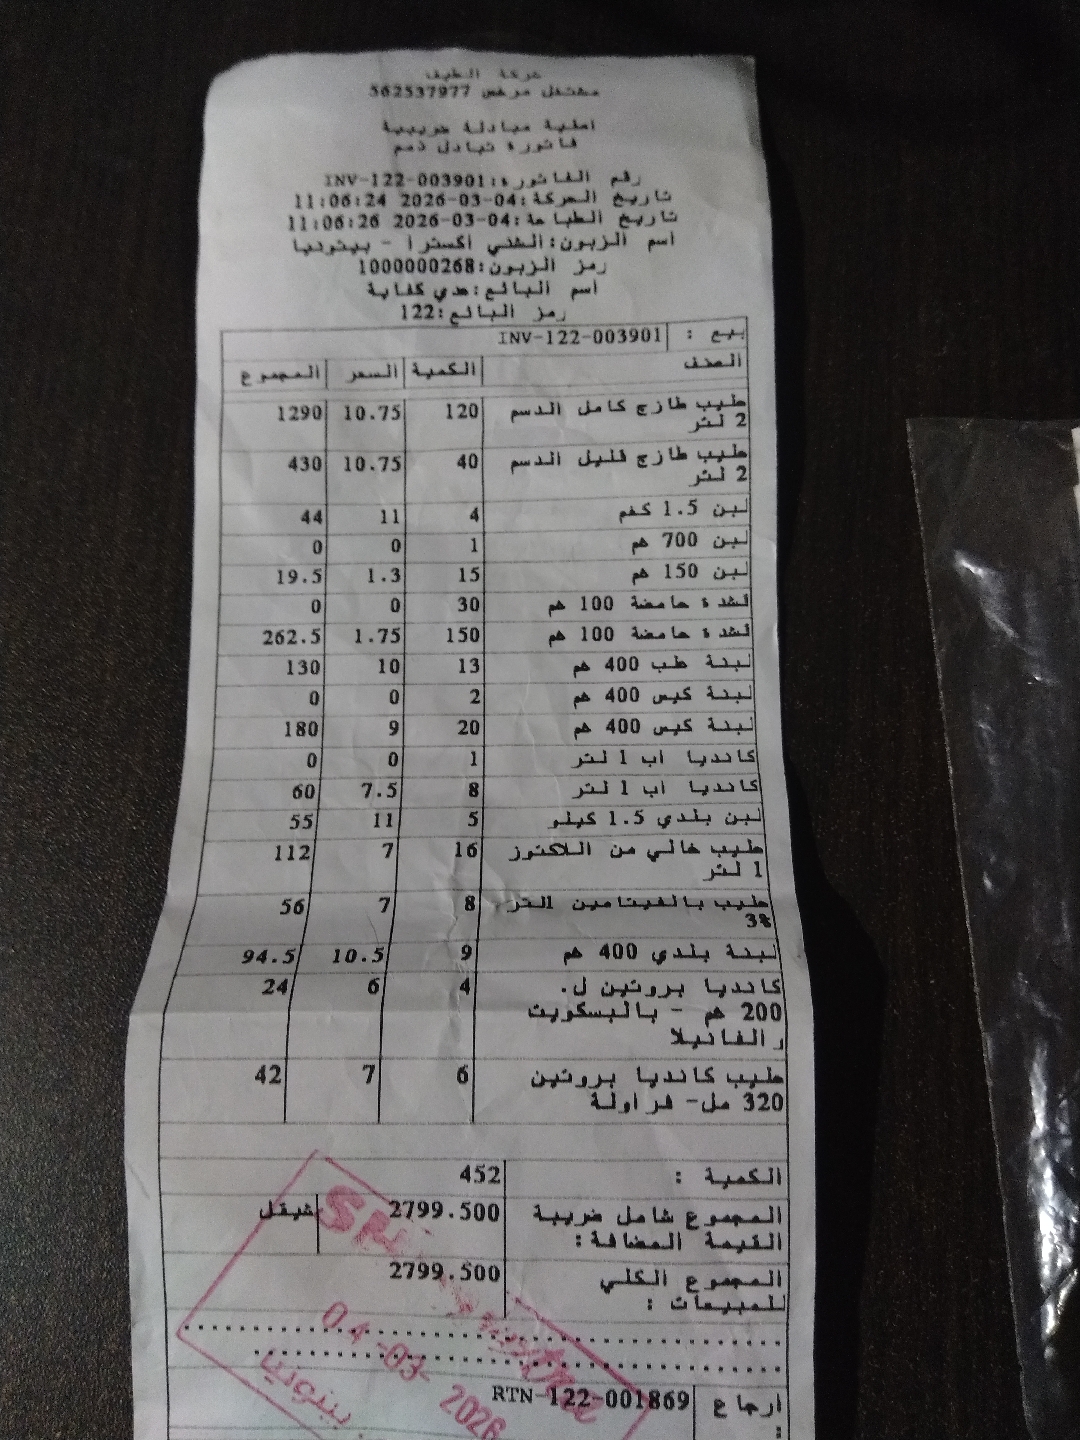 شركة الطيف
مشتغل مرخص 562537977
اصلية مبادلة ضريبية
فاتورة تبادل ذمم
رقم الفاتورة:INV-122-003901
تاريخ الحركة:2026-03-04 11:06:24
تاريخ الطباعة:2026-03-04 11:06:26
اسم الزبون:الشني اكسترا - بيتونيا
رمز الزبون:1000000268
اسم البائع:عدي كفاية
رمز البائع:122
بيع : INV-122-003901
الصنف الكمية السعر المجموع
حليب طازج كامل الدسم 120 10.75 1290
2 لتر
حليب طازج قليل الدسم 40 10.75 430
2 لتر
لبن 1.5 كغم 4 11 44
لبن 700 غم 1 0 0
لبن 150 غم 15 1.3 19.5
قشدة حامضة 100 غم 30 0 0
قشدة حامضة 100 غم 150 1.75 262.5
لبنة علب 400 غم 13 10 130
لبنة كيس 400 غم 2 0 0
لبنة كيس 400 غم 20 9 180
كانديا اب 1 لتر 1 0 0
كانديا اب 1 لتر 8 7.5 60
لبن بلدي 1.5 كيلو 5 11 55
حليب خالي من اللاكتوز 16 7 112
1 لتر
حليب بالفيتامين 1لتر 8 7 56
3%
لبنة بلدي 400 غم 9 10.5 94.5
كانديا بروتين ل. 4 6 24
200 غم - بالبسكويت
والفانيلا
حليب كانديا بروتين 6 7 42
320 مل- فراولة
الكمية : 452
المجموع شامل ضريبة 2799.500 شيقل
القيمة المضافة:
المجموع الكلي 2799.500
للمبيعات :
04-03-2026
بيتونيا
ارجاع RTN-122-001869
: